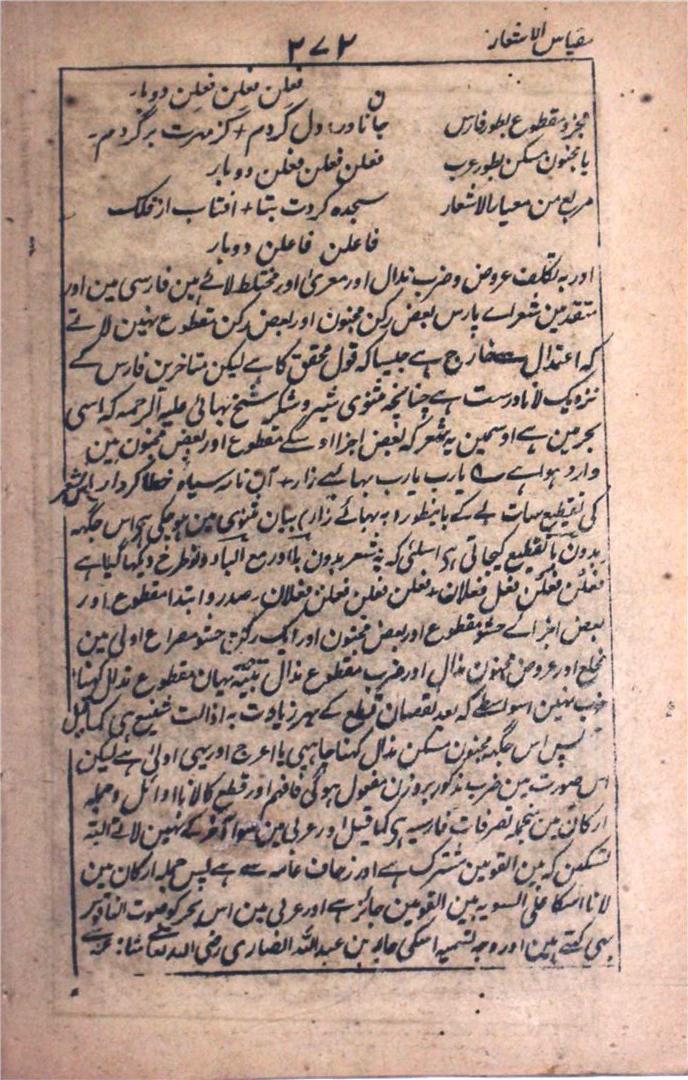 مقیاس الاشعار
۲۷۲
فعلن فعلن فعلن فعلن دوبار
مجزو مقطوع بطور فارس جانا دردل کردم + کز مہرت برگردم۔
یا مجنون مسکن بطور عرب فعلن فعلن فعلن دوبار
مربع من معیار الاشعار سجدہ کردت بتا + افتاب از فلک
فاعلن فاعلن دوبار
اور بہ تکلف عروض و ضرب مذال اور معریٰ اور مختلط لائے ہین فارسی مین اور
متقدمین شعراے پارس بعض رکن مخبون اور بعض رکن مقطوع نہین لاتے
کہ اعتدال سے خارج ہے جیسا کہ قول محقق کا ہے لیکن متاخرین فارس کے
نزدیک لانا درست ہے چنانچہ مثنوی شیر و شکر شیخ بہائی علیہ الرحمہ کہ اسی
بحر مین ہے اوسمین یہ شعر کہ بعض اجزا او سکے مقطوع اور بعض مخبون مین
وارد ہوا ہے یارب یارب بہائیے زار + آن نامہ سیاہ خطا کردار اس شعر
کی تقطیع بیان مثنوی مین ہو چکی ہی اس جگہہ
بدون با تقطیع کیجاتی ہی اسلئی کہ یہ شعر بدون با اور مع البا دونو طرح دیکھا گیا ہے
فعلن فعلن فعل فعلان + فعلن فعلن فعلن فعلان۔ صدر و ابتدا مقطوع اور
بعض اجزائے حشو مقطوع اور بعض مخبون اور ایک رکن حشو مصراع اولیٰ مین
مخلع اور عروض مخبون مذال اور ضرب مقطوع مذال تنبیہ یہان مقطوع مذال کہنا
خوب نہین اسواسطے کہ بعد نقصان قطع کے پھر زیادت بہ اذالت شنیع ہی کما قیل
پس اس جگہہ مخبون مسکن مذال کہنا چاہیی یا اعرج اور یہی اولیٰ ہے لیکن
اس صورت مین ضرب مذکور بروزن مفعول ہوگی فافہم اور قطع کا لانا اوائل و جملہ
ارکان مین منجملہ تصرفات فارسیہ ہی کما قیل اور عربی مین سوا آخر کے نہین لاتے البتہ
تسکین کہ بین القومین مشترک ہے اور زحاف عامہ سے ہے پس جملہ ارکان مین
لانا اسکا علی السویہ بین القومین جائز ہے اور عربی مین اس بحر کو صوت الناقوس
بہی کہتے ہین اور وجہ تسمیہ اسکی جابر بن عبد اللہ انصاری رضی اللہ تعالیٰ عنہ سے